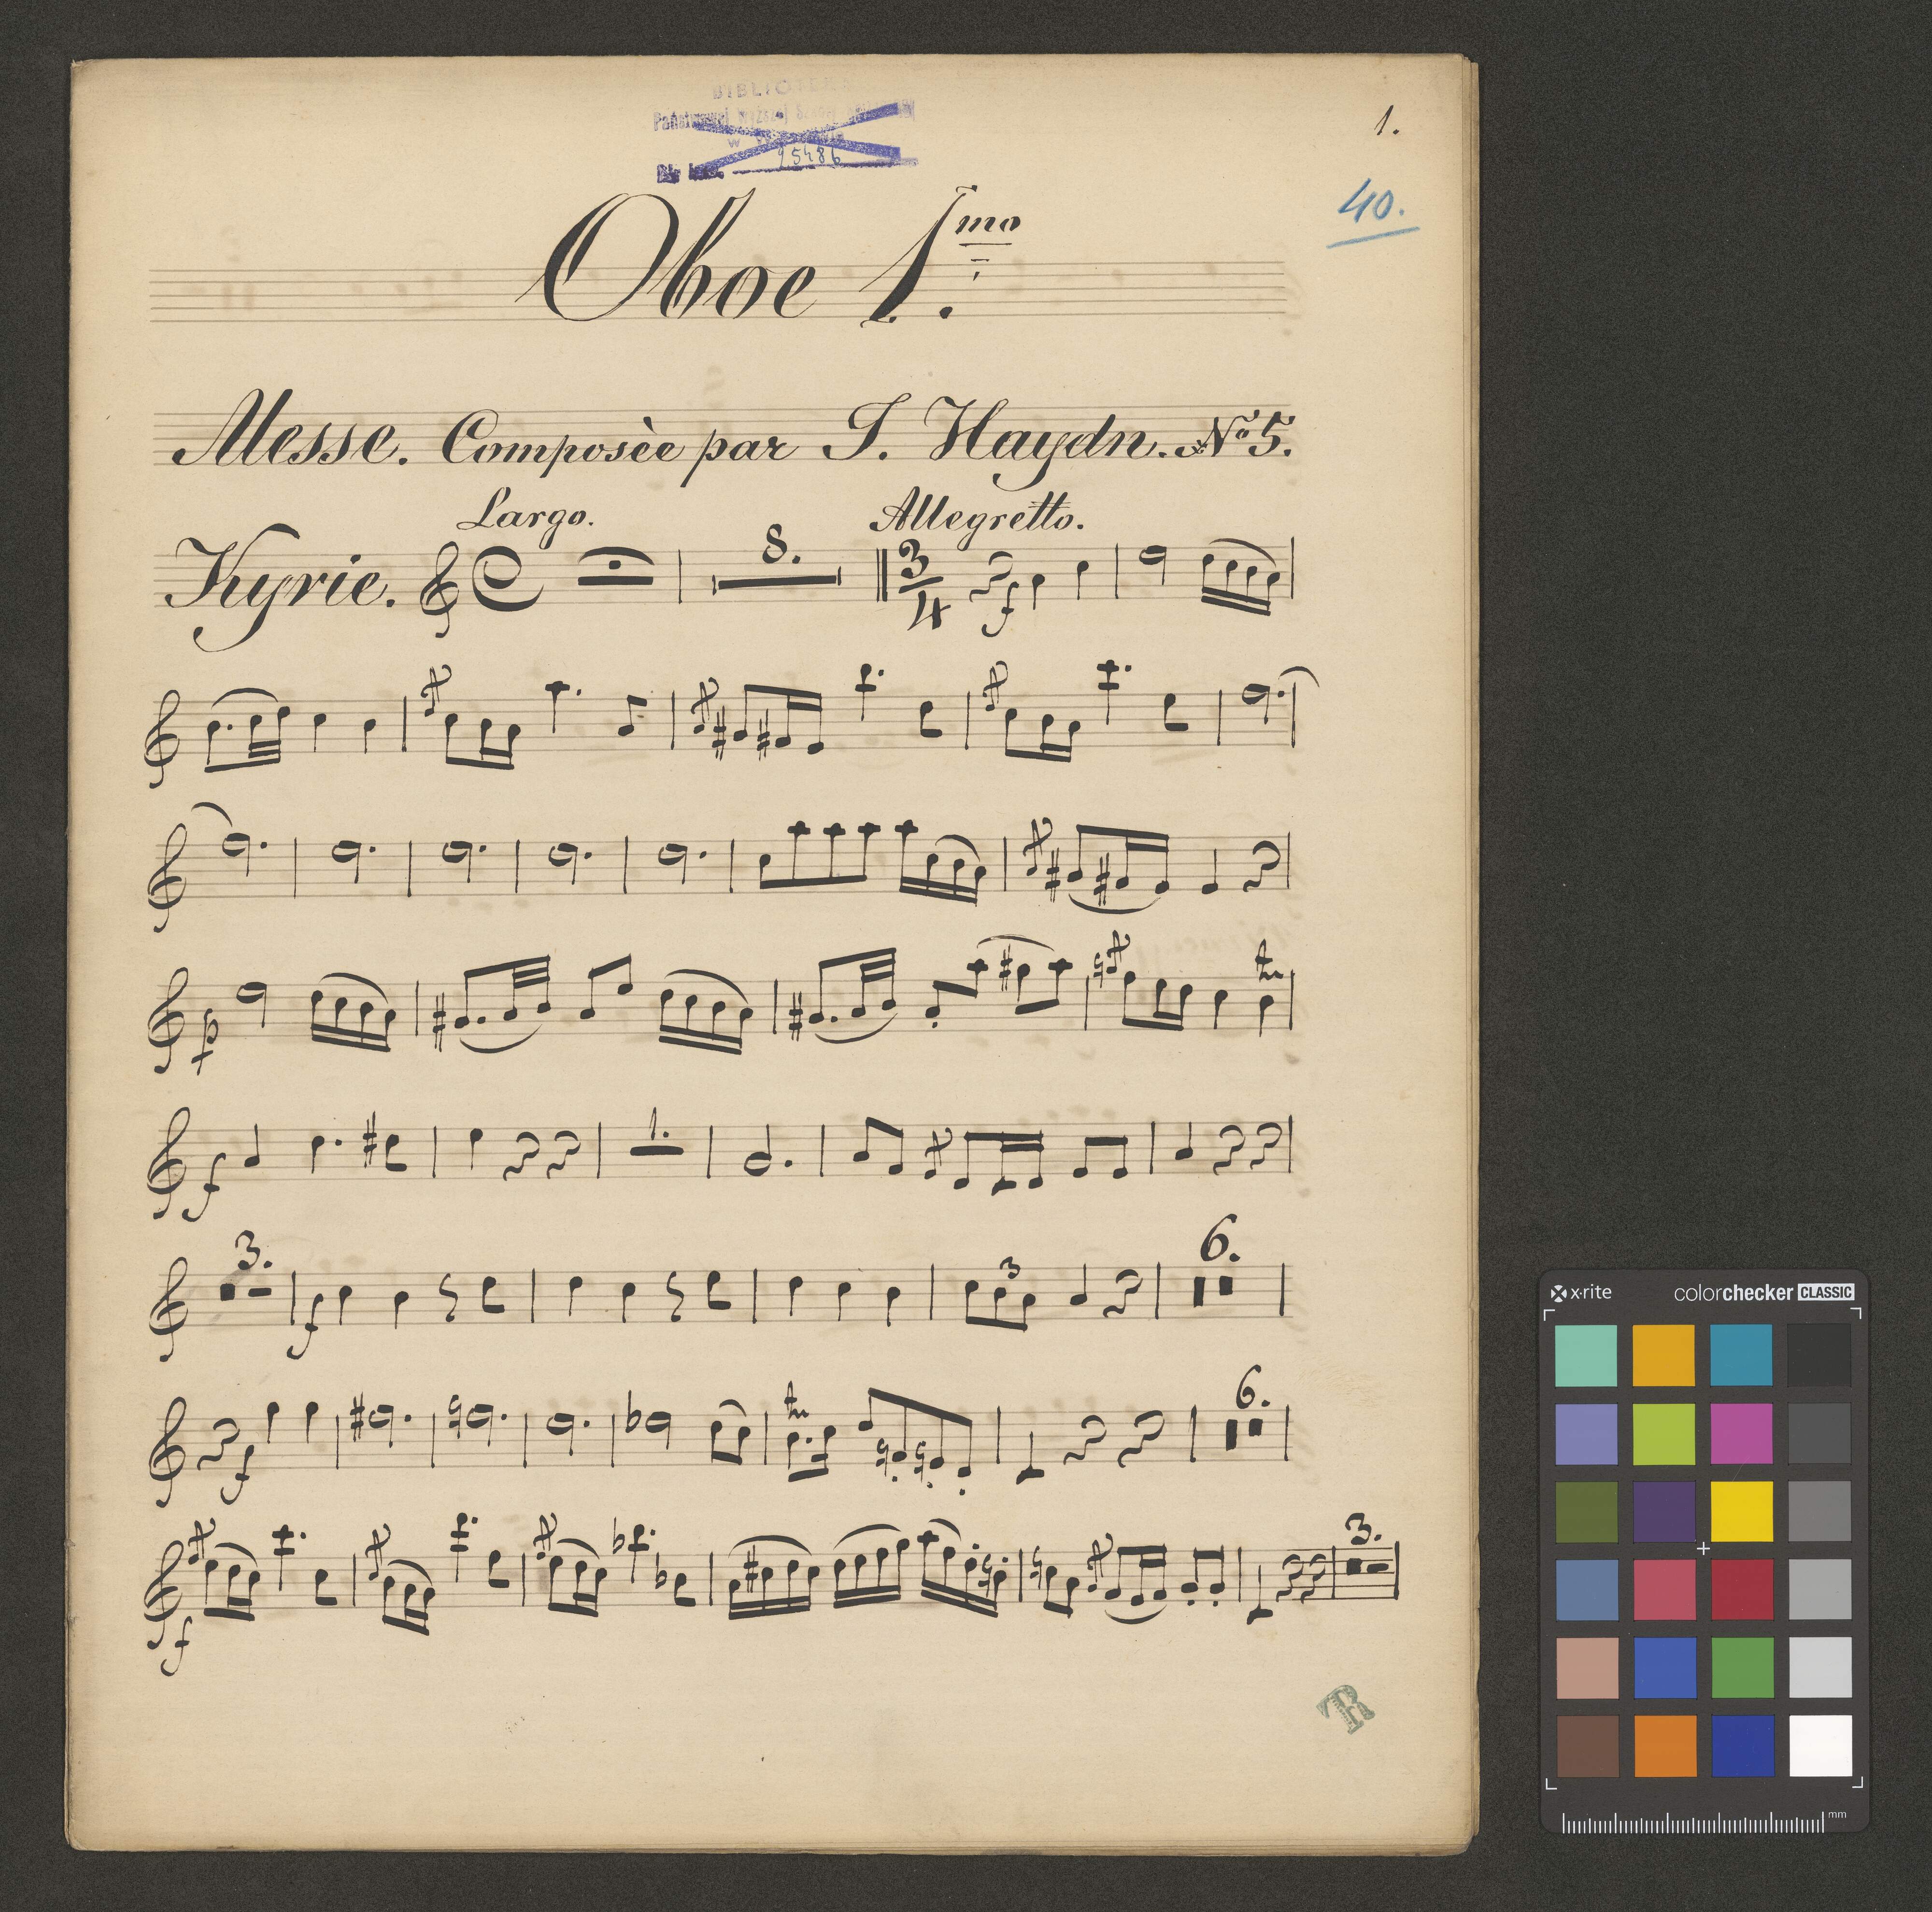 BIBLIOTEKA
Państwowej Wyższej Szkoły
w
95486
1.
40.
Oboe 1.mo
Messe. Composèe par J. Haydn. No 5.
Largo. Allegretto.
Kyrie. 8. 3/4 f
p tr
f 1.
3. f 3 6.
f tr 6.
f 3.
TR
x-rite colorchecker CLASSIC
mm